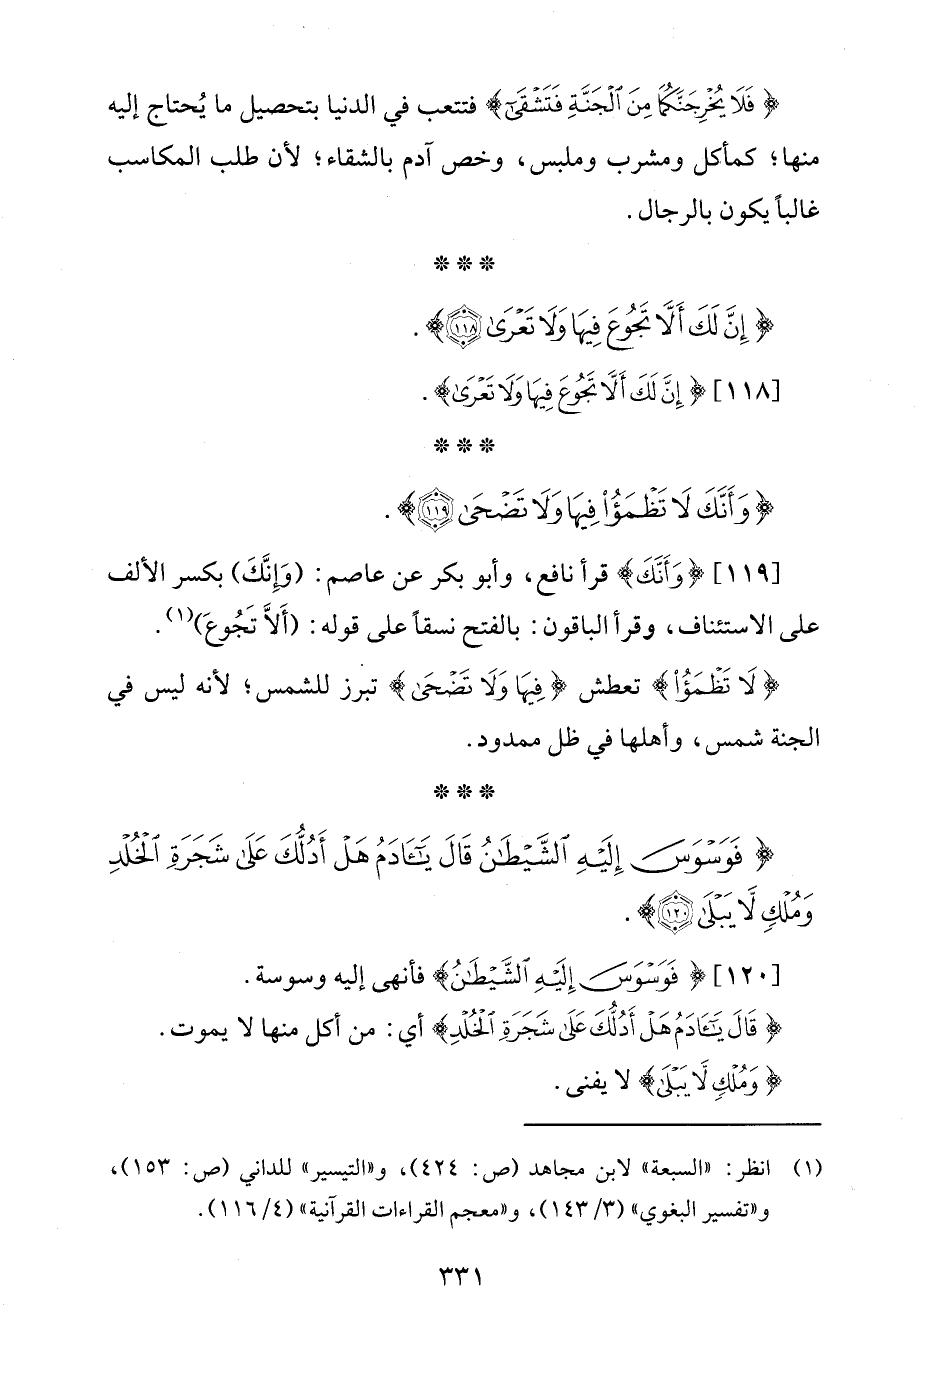 ﴿ فَلَا يُخْرِجَنَّكُمَا مِنَ ٱلْجَنَّةِ فَتَشْقَىٰٓ﴾ فتتعب في الدنيا بتحصيل ما يُحتاج إليه
منها؛ كمأكل ومشرب وملبس، وخص آدم بالشقاء؛ لأن طلب المكاسب
غالباً يكون بالرجال.
* * *
﴿ إِنَّ لَكَ أَلَّا تَجُوعَ فِيهَا وَلَا تَعْرَىٰ ١١٨﴾.
[١١٨] ﴿ إِنَّ لَكَ أَلَّا تَجُوعَ فِيهَا وَلَا تَعْرَىٰ﴾.
* * *
﴿ وَأَنَّكَ لَا تَظْمَؤُا۟ فِيهَا وَلَا تَضْحَىٰ ١١٩﴾.
[١١٩] ﴿وَأَنَّكَ﴾ قرأ نافع، وأبو بكر عن عاصم: (وَإِنَّكَ) بكسر الألف
على الاستئناف، وقرأ الباقون: بالفتح نسقاً على قوله: (أَلاَّ تَجُوعَ)(١).
﴿لَا تَظْمَؤُا۟﴾ تعطش ﴿فِيهَا وَلَا تَضْحَىٰ﴾ تبرز للشمس؛ لأنه ليس في
الجنة شمس، وأهلها في ظل ممدود.
* * *
﴿ فَوَسْوَسَ إِلَيْهِ ٱلشَّيْطَٰنُ قَالَ يَٰٓـَٔادَمُ هَلْ أَدُلُّكَ عَلَىٰ شَجَرَةِ ٱلْخُلْدِ
وَمُلْكٍ لَّا يَبْلَىٰ ١٢٠﴾.
[١٢٠] ﴿ فَوَسْوَسَ إِلَيْهِ ٱلشَّيْطَٰنُ﴾ فأنهى إليه وسوسة.
﴿ قَالَ يَٰٓـَٔادَمُ هَلْ أَدُلُّكَ عَلَىٰ شَجَرَةِ ٱلْخُلْدِ﴾ أي: من أكل منها لا يموت.
﴿ وَمُلْكٍ لَّا يَبْلَىٰ﴾ لا يفنى.
(١) انظر: «السبعة» لابن مجاهد (ص: ٤٢٤)، و«التيسير» للداني (ص: ١٥٣)،
و«تفسير البغوي» (٣/ ١٤٣)، و«معجم القراءات القرآنية» (٤/ ١١٦).
٣٣١